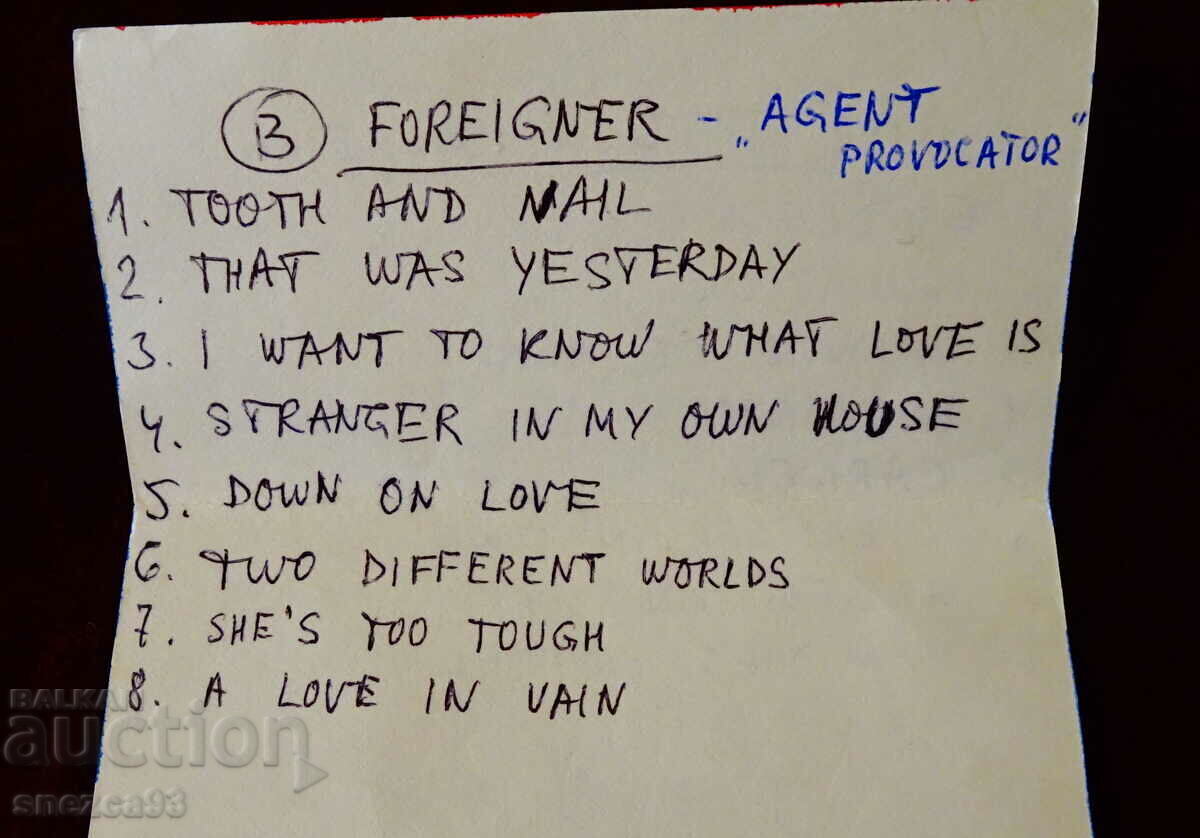 B FOREIGNER - „AGENT
PROVOCATOR"
1. TOOTH AND NAIL
2. THAT WAS YESTERDAY
3. I WANT TO KNOW WHAT LOVE IS
4. STRANGER IN MY OWN HOUSE
5. DOWN ON LOVE
6. TWO DIFFERENT WORLDS
7. SHE'S TOO TOUGH
8. A LOVE IN VAIN
BALKAN
auction
snezca93